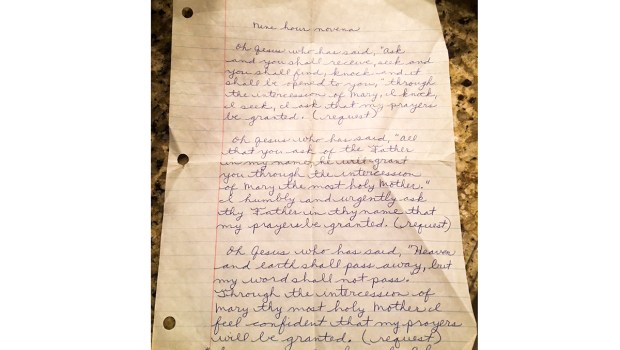 Nine hour novena
Oh Jesus who has said, "ask
and you shall receive, seek and
you shall find, knock and it
shall be opened to you," through
the intercession of Mary, I knock,
I seek, I ask that my prayers
be granted. (request)
Oh Jesus who has said, "all
that you ask of the Father
in my name, he will grant
you through the intercession
of Mary the most holy Mother."
I humbly and urgently ask
thy Father in thy name that
my prayers be granted. (request)
Oh Jesus who has said, "Heaven
and earth shall pass away, but
my word shall not pass.
Through the intercession of
Mary thy most holy Mother I
feel confident that my prayers
will be granted. (request)